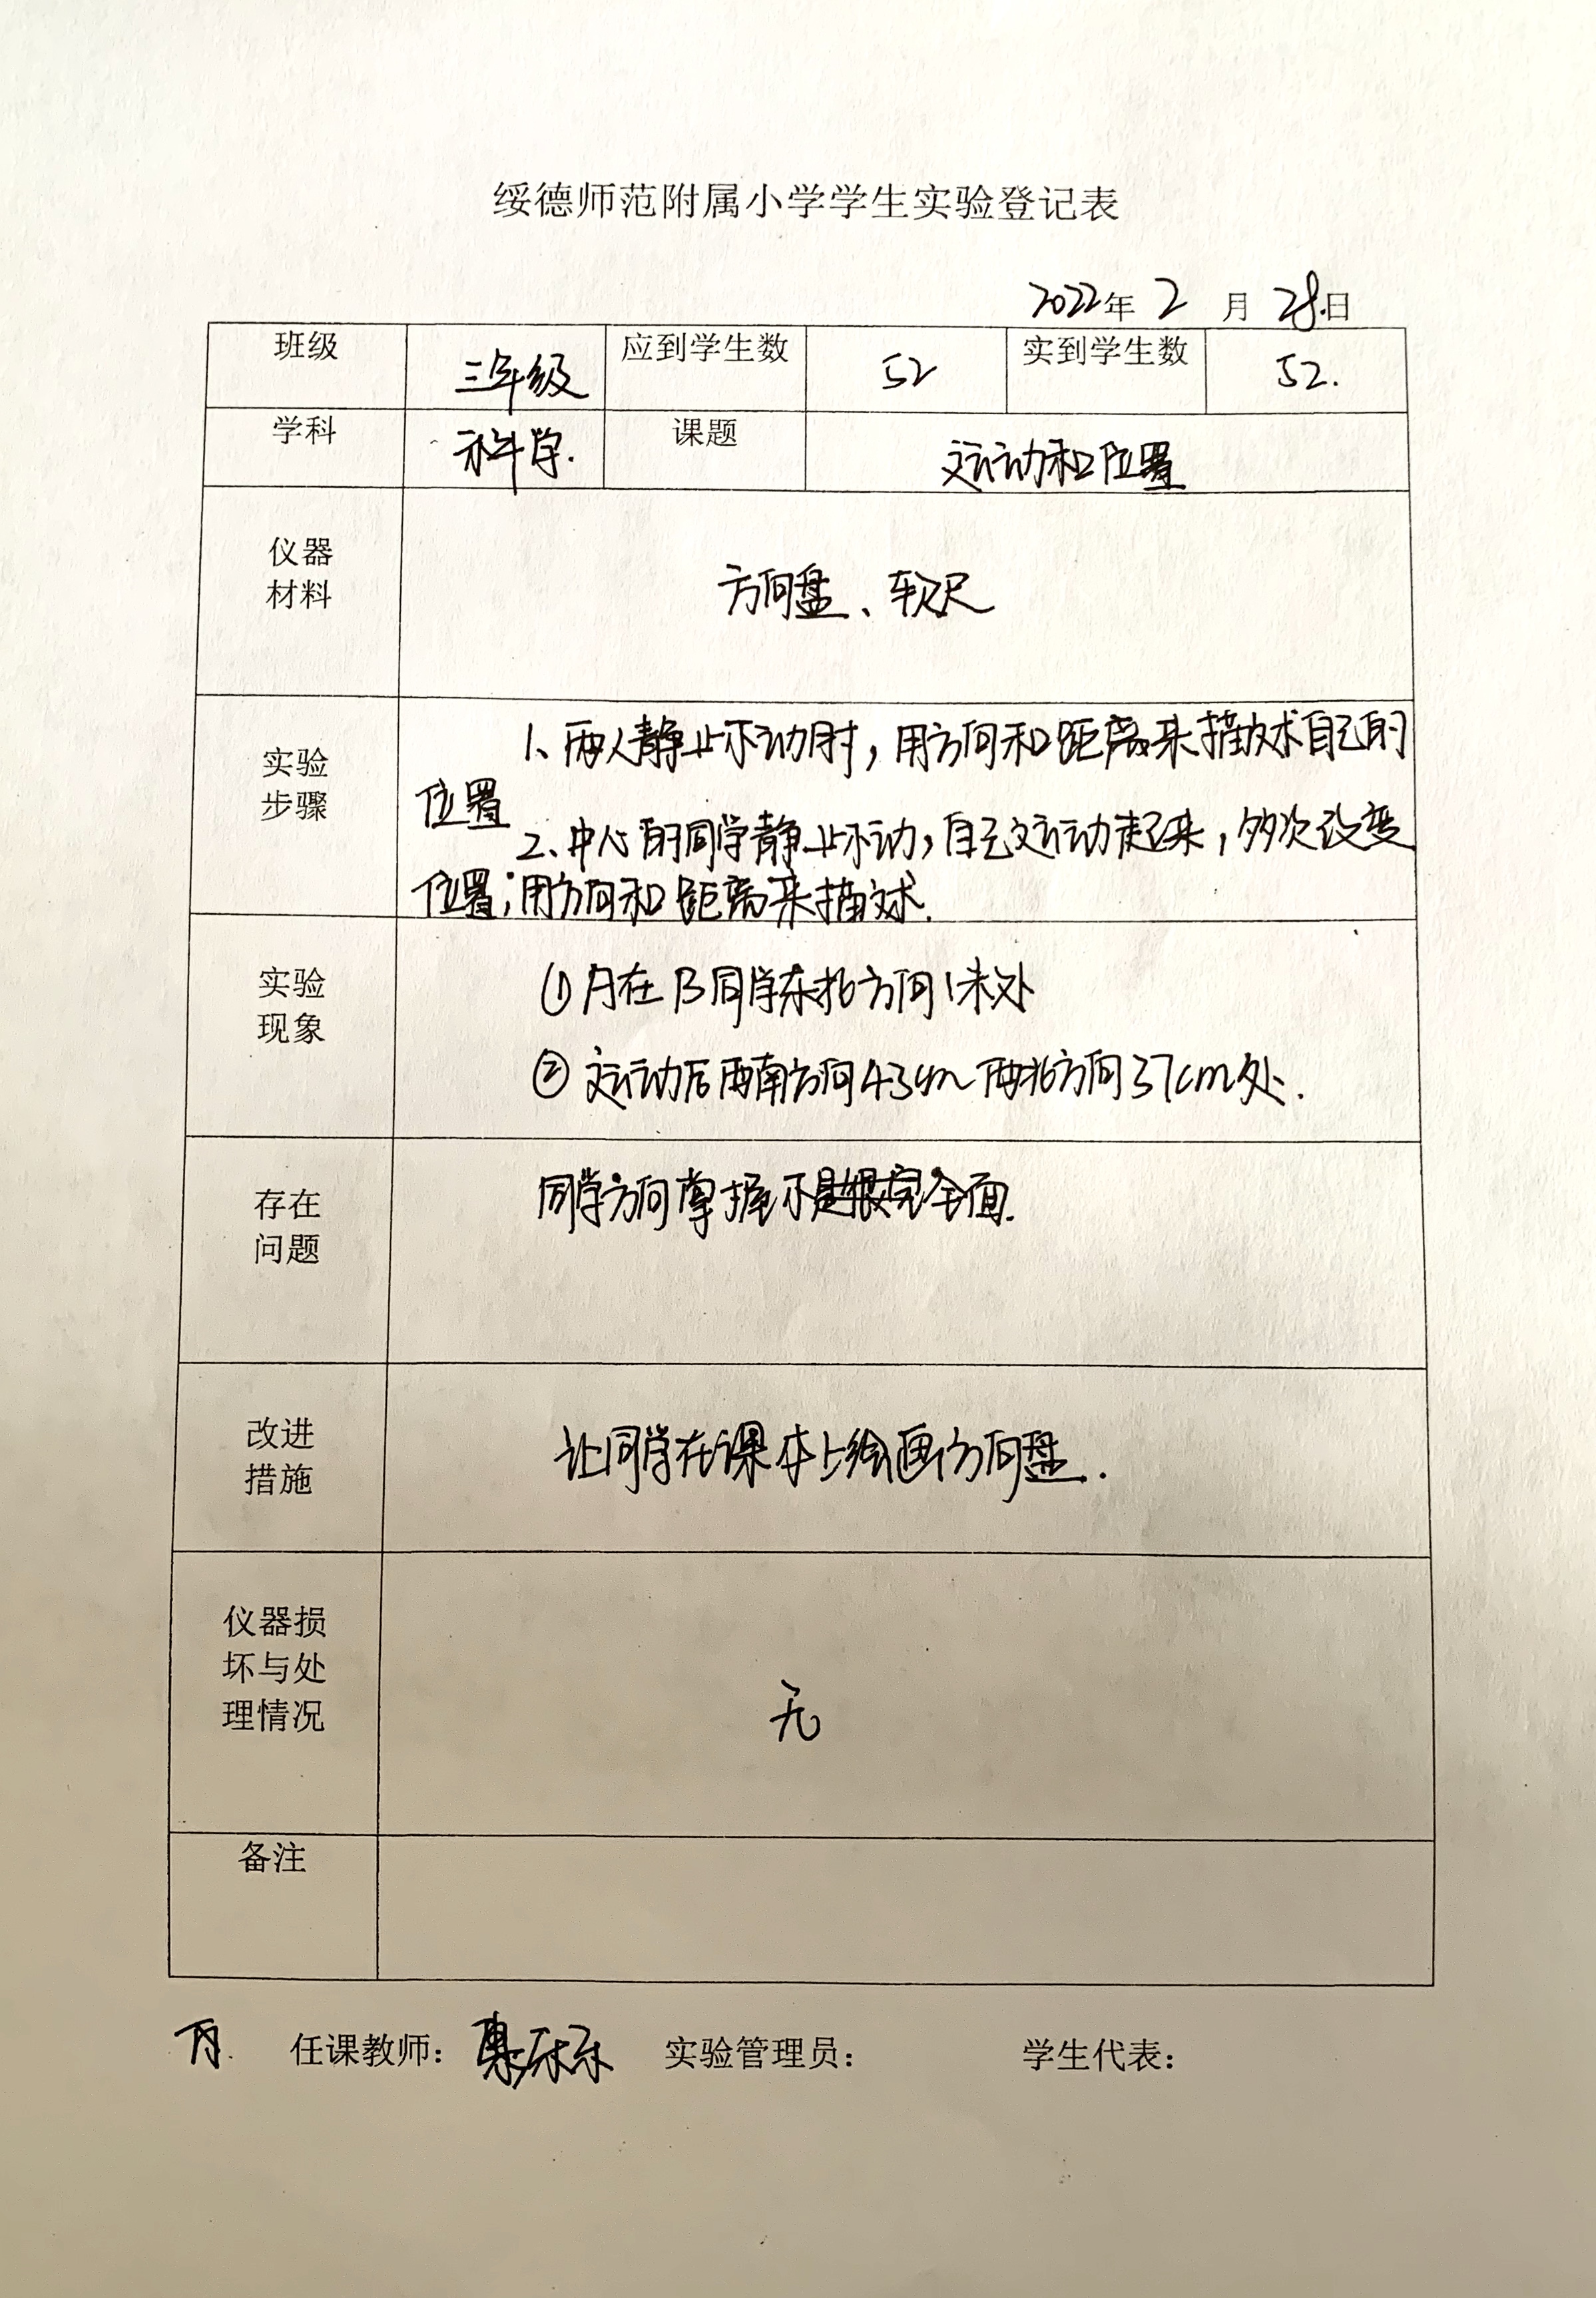 绥德师范附属小学学生实验登记表
2022年 2 月 28日
班级 三年级 应到学生数 52 实到学生数 52.
学科 科学. 课题 运动和位置
仪器
材料
方向盘、软尺
实验
步骤
1、两人静止不动时,用方向和距离来描述自己的
位置
2、中心的同学静止不动,自己运动起来,多次改变
位置;用方向和距离来描述.
实验
现象
① A在B同学东北方向1米处
② 运动后西南方向43cm 西北方向37cm处.
存在
问题
同学方向掌握不是很完全面.
改进
措施
让同学在课本上绘画方向盘.
仪器损
坏与处
理情况
无
备注
任课教师: 实验管理员: 学生代表: